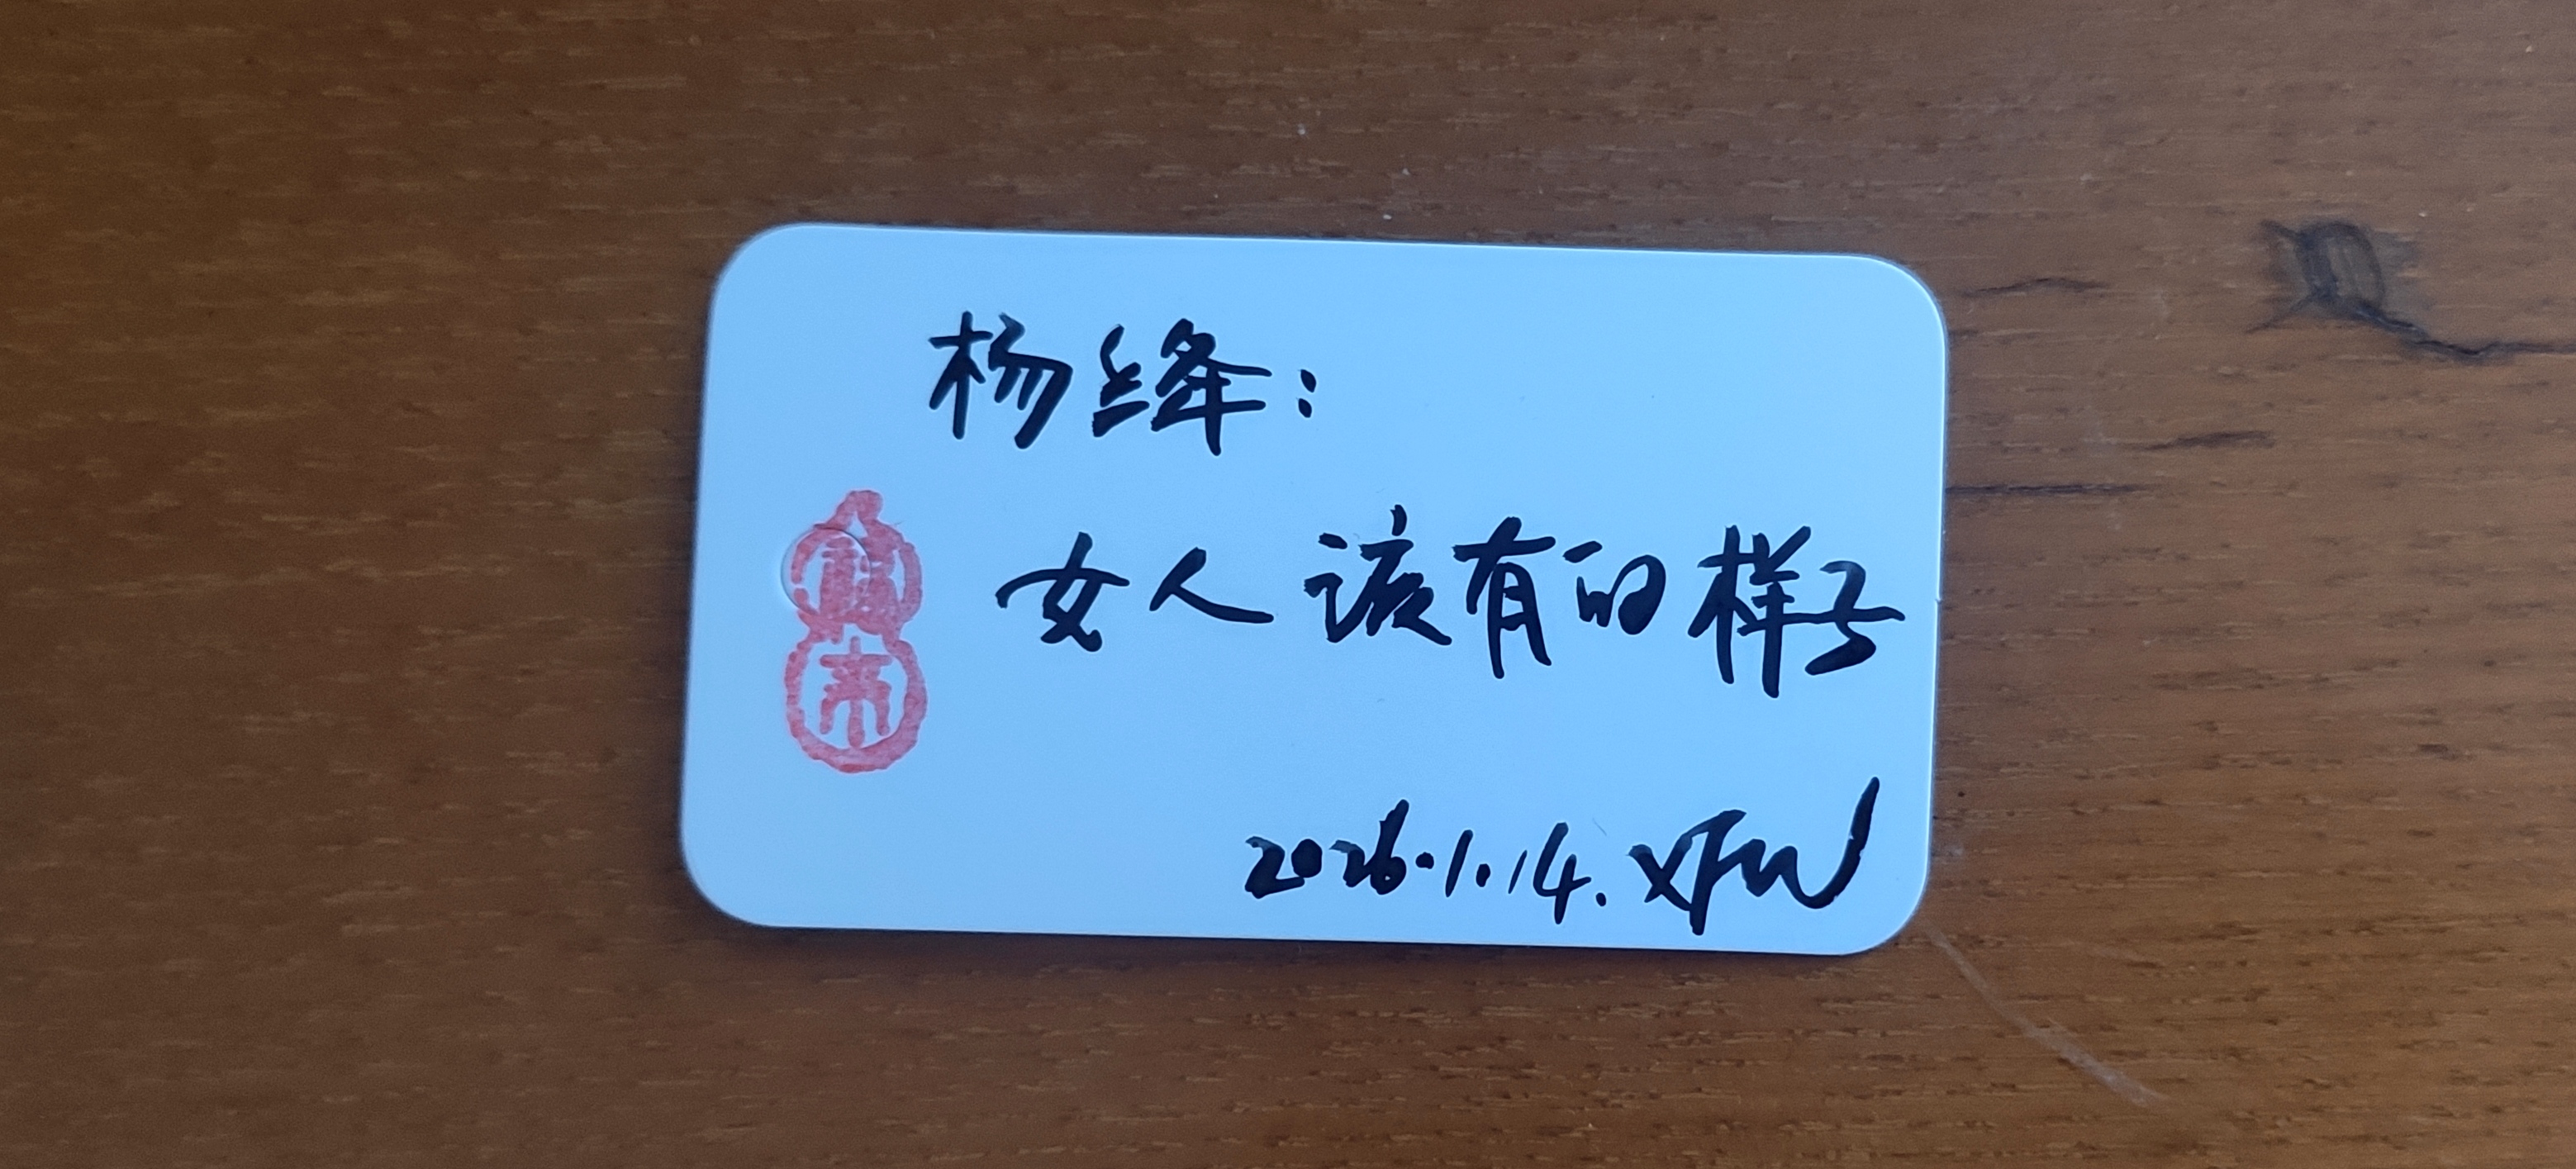 杨绛：
女人该有的样子
2026.1.14. XFW